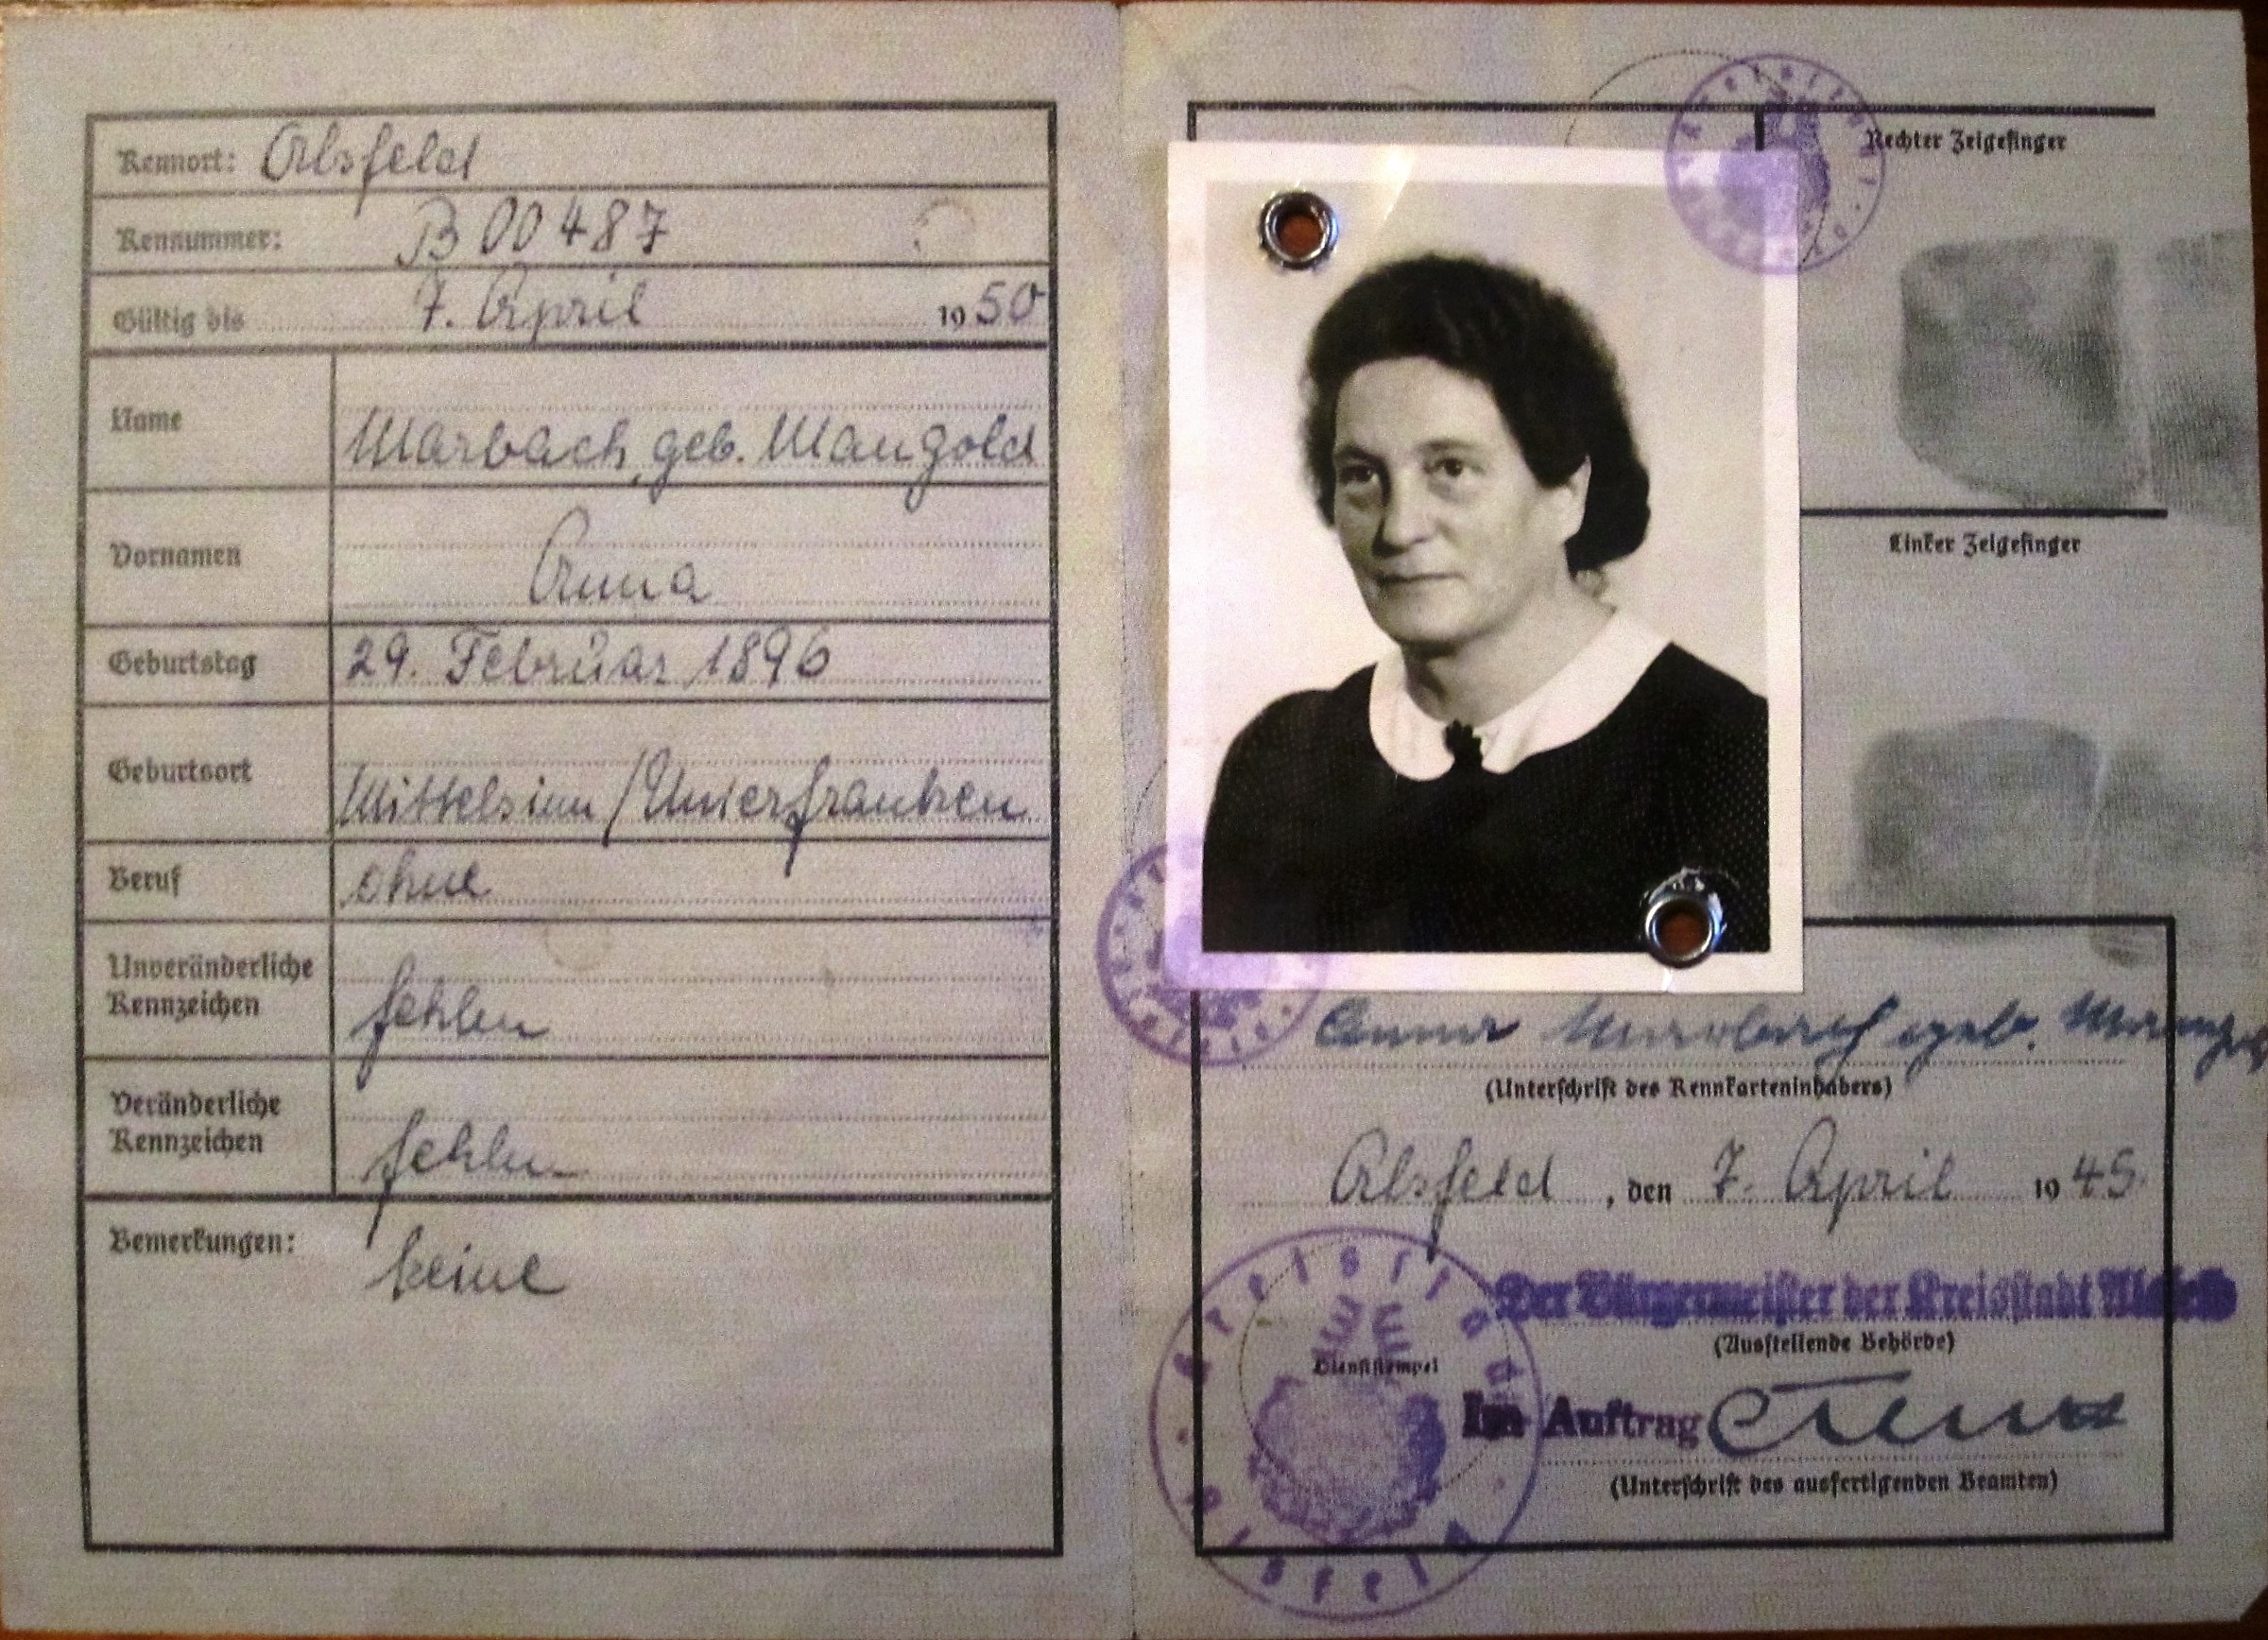 Kennort: Alsfeld
Kennummer: B 00487
Gültig bis 7. April 1950
Name Marbach, geb. Mangold
Vornamen Anna
Geburtstag 29. Februar 1896
Geburtsort Mittelsinn / Unterfranken
Beruf ohne
Unveränderliche
Kennzeichen fehlen
Veränderliche
Kennzeichen fehlen
Bemerkungen: keine
Rechter Zeigefinger
Linker Zeigefinger
Anna Marbach geb.
(Unterschrift des Kennkarteninhabers)
Alsfeld, den 7. April 1945.
Der Bürgermeister der Kreisstadt Alsfeld
(Ausstellende Behörde)
Dienststempel
Kreisstadt Alsfeld
Im Auftrag
(Unterschrift des ausfertigenden Beamten)